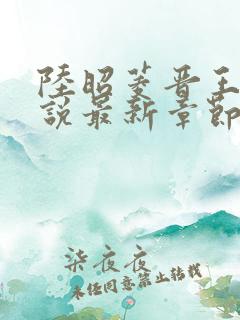 陸昭菱晋王
說最新章節
柒夜夜
未经同意禁止转载